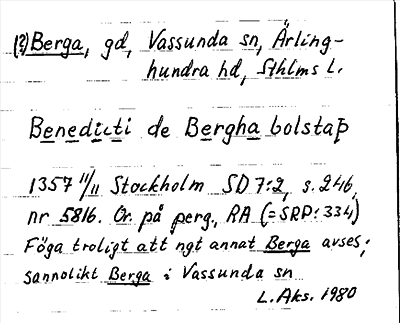 (?) Berga, gd, Vassunda sn, Ärling-
hundra hd, Sthlms L.
Benedicti de Bergha bolstaþ
1357 11/11 Stockholm SD 7:2, s. 246,
nr 5816. Or. på perg., RA (=SRP: 334)
Föga troligt att ngt annat Berga avses;
sannolikt Berga i Vassunda sn
L. Aks. 1980